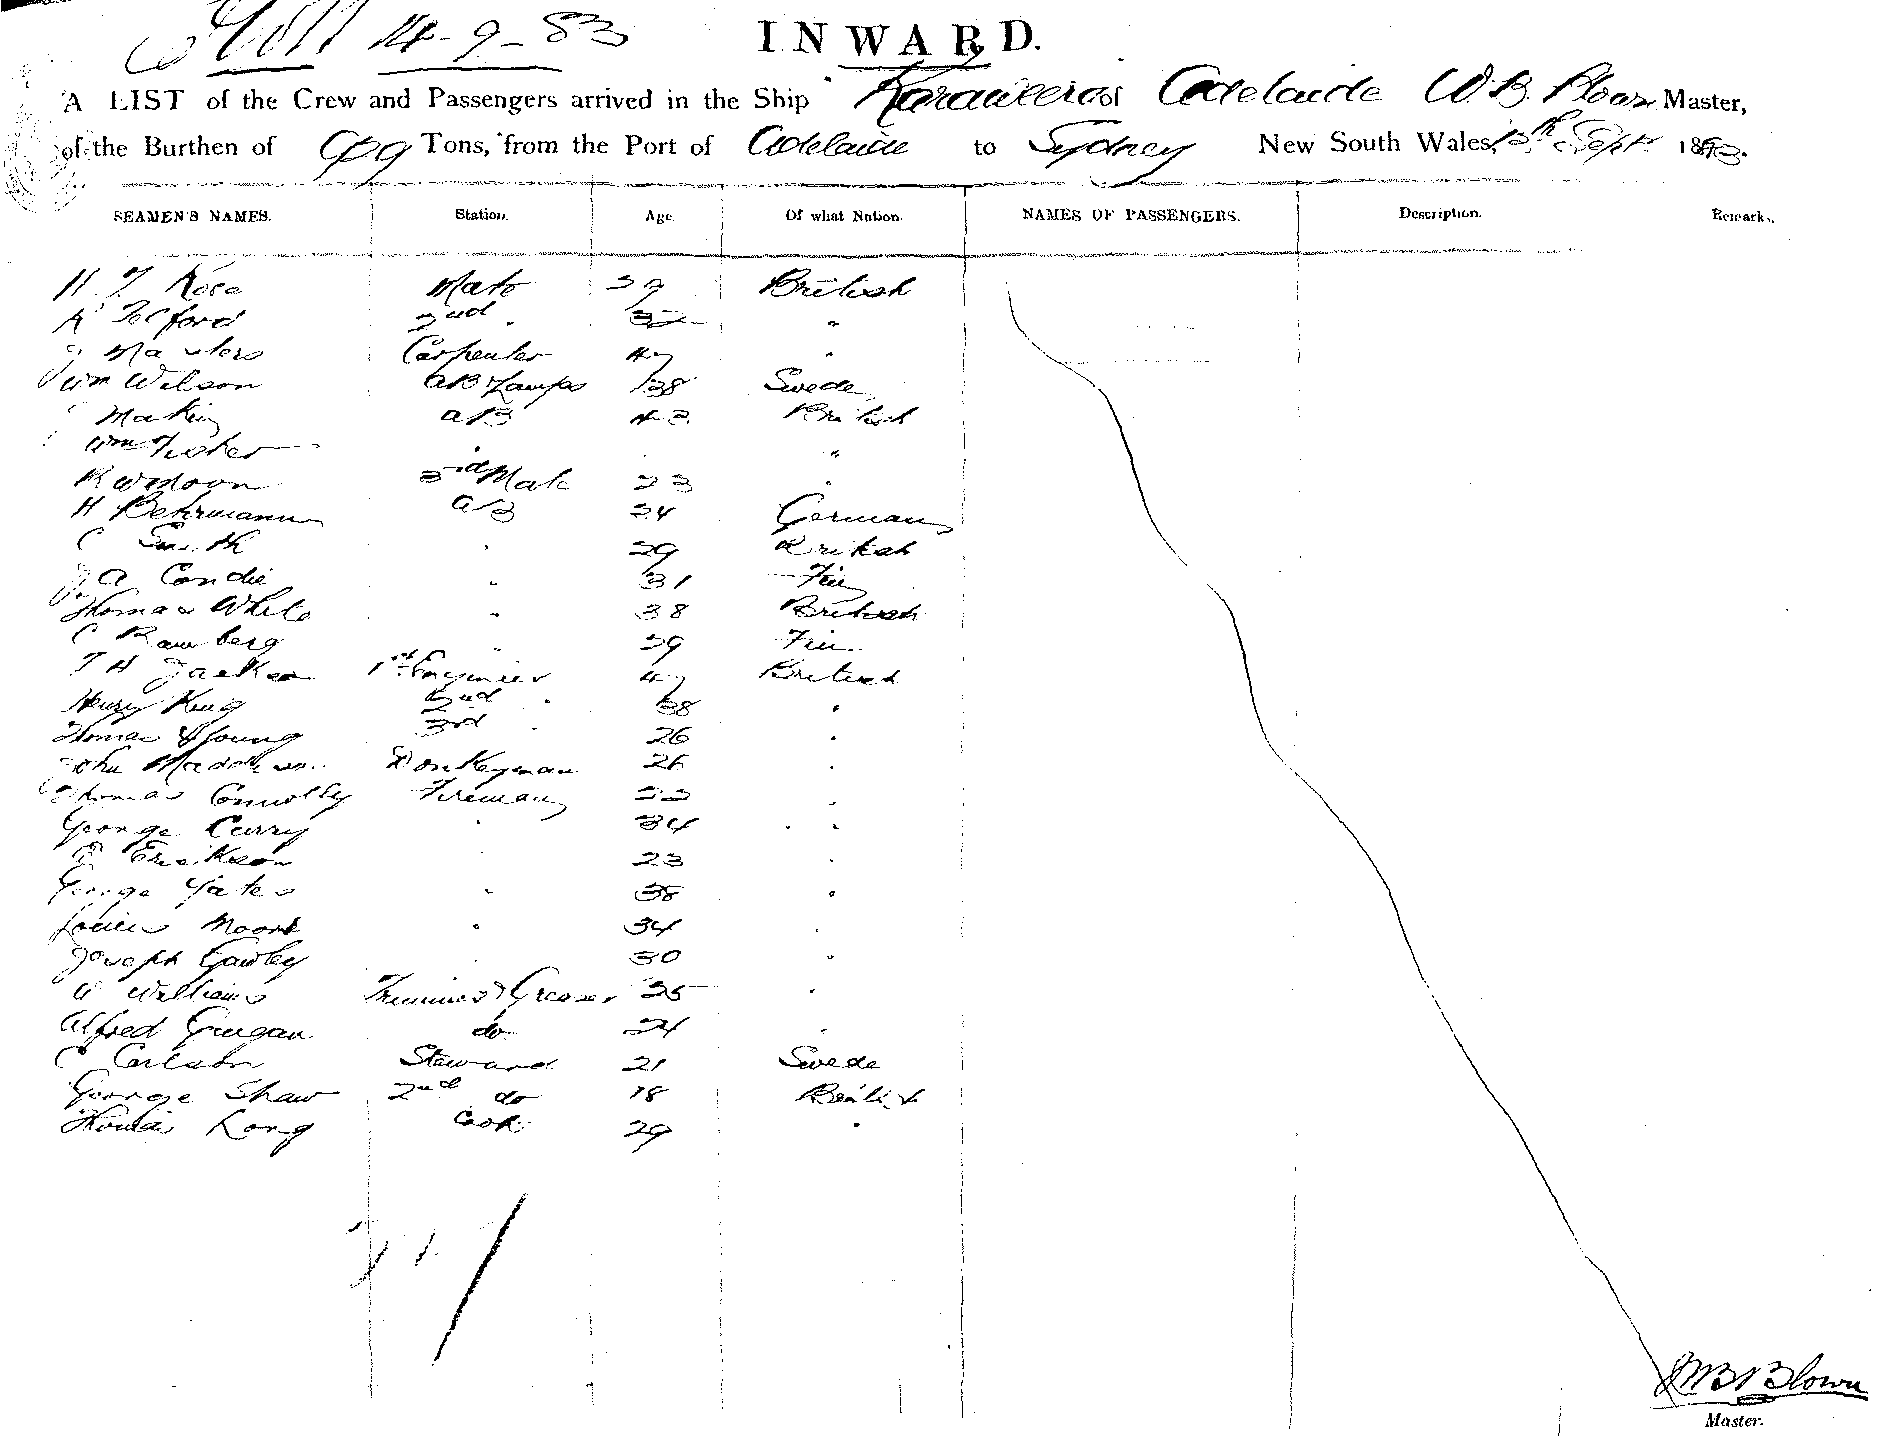 14-9-83
INWARD.
A LIST of the Crew and Passengers arrived in the Ship Karaweera of Adelaide W.B. Blown Master,
of the Burthen of Tons, from the Port of Adelaide to Sydney New South Wales, 13th Sept. 1893.
SEAMEN'S NAMES. Station. Age. Of what Nation. NAMES OF PASSENGERS. Description. Remarks.
H Mate 39 British
2nd " 32 "
Masters Carpenter 47 "
Wm Wilson AB Lamps 38 Swede
Making AB 43 British
Wm Fisher "
R 3rd Mate 23 "
H Behrmann AB 24 German
C Smith " 29 British
A Condie " 31 Fin
Thomas White " 38 British
C Ramberg " 39 Fin
T H Jackson 1st Engineer 47 British
Henry King 2nd " 38 "
Thomas Young 3rd " 26 "
John Maddison Donkeyman 26 "
Thomas Connolly Fireman "
George Curry " 34 "
Erickson 23 "
George Yates " 38 "
Moore " 34 "
Joseph Gawley 30 "
W Williams Trimmer & Greaser 25 "
Alfred Grugan do 24 "
C Carlson Steward 21 Swede
George Shaw 2nd do 18 British
Thomas Long Cook 29 "
W B Blown
Master.